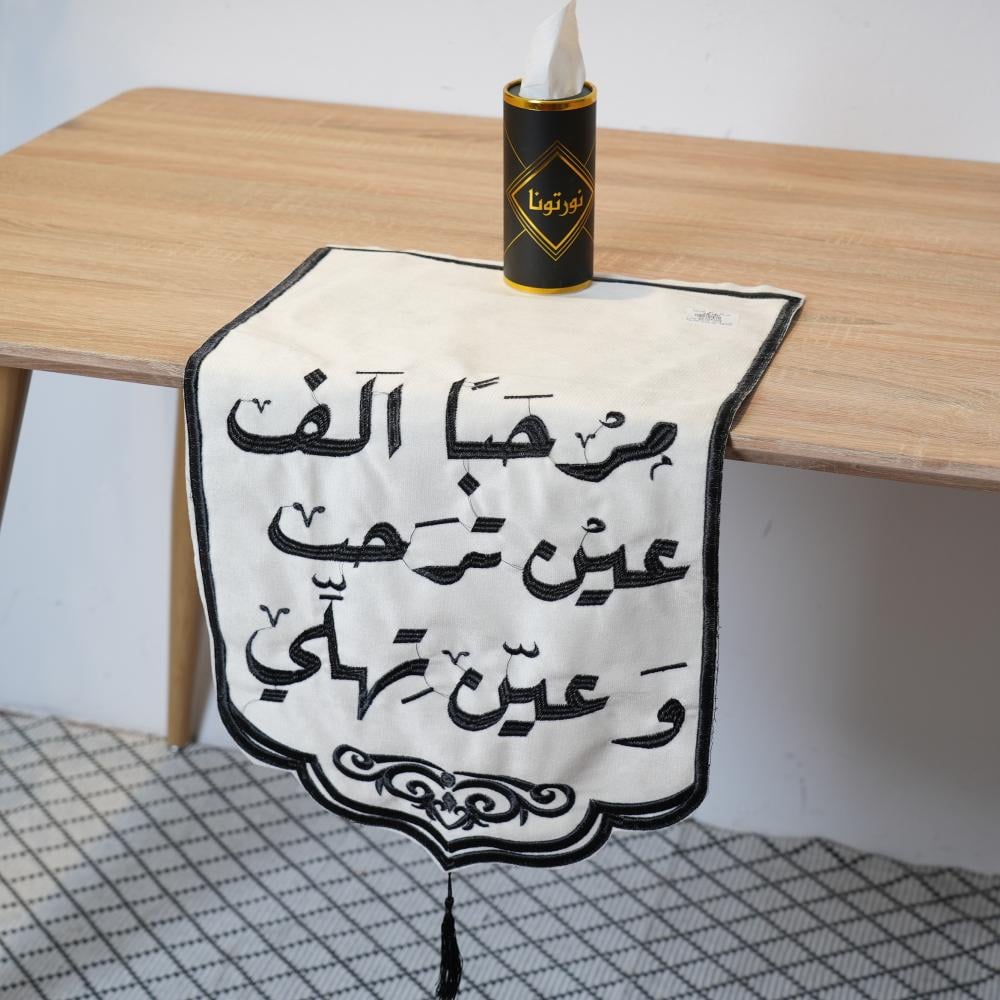 نورتونا
مَرْحَبًا الَف
عيْن تَرَحب
وَ عيّن تِهلّي